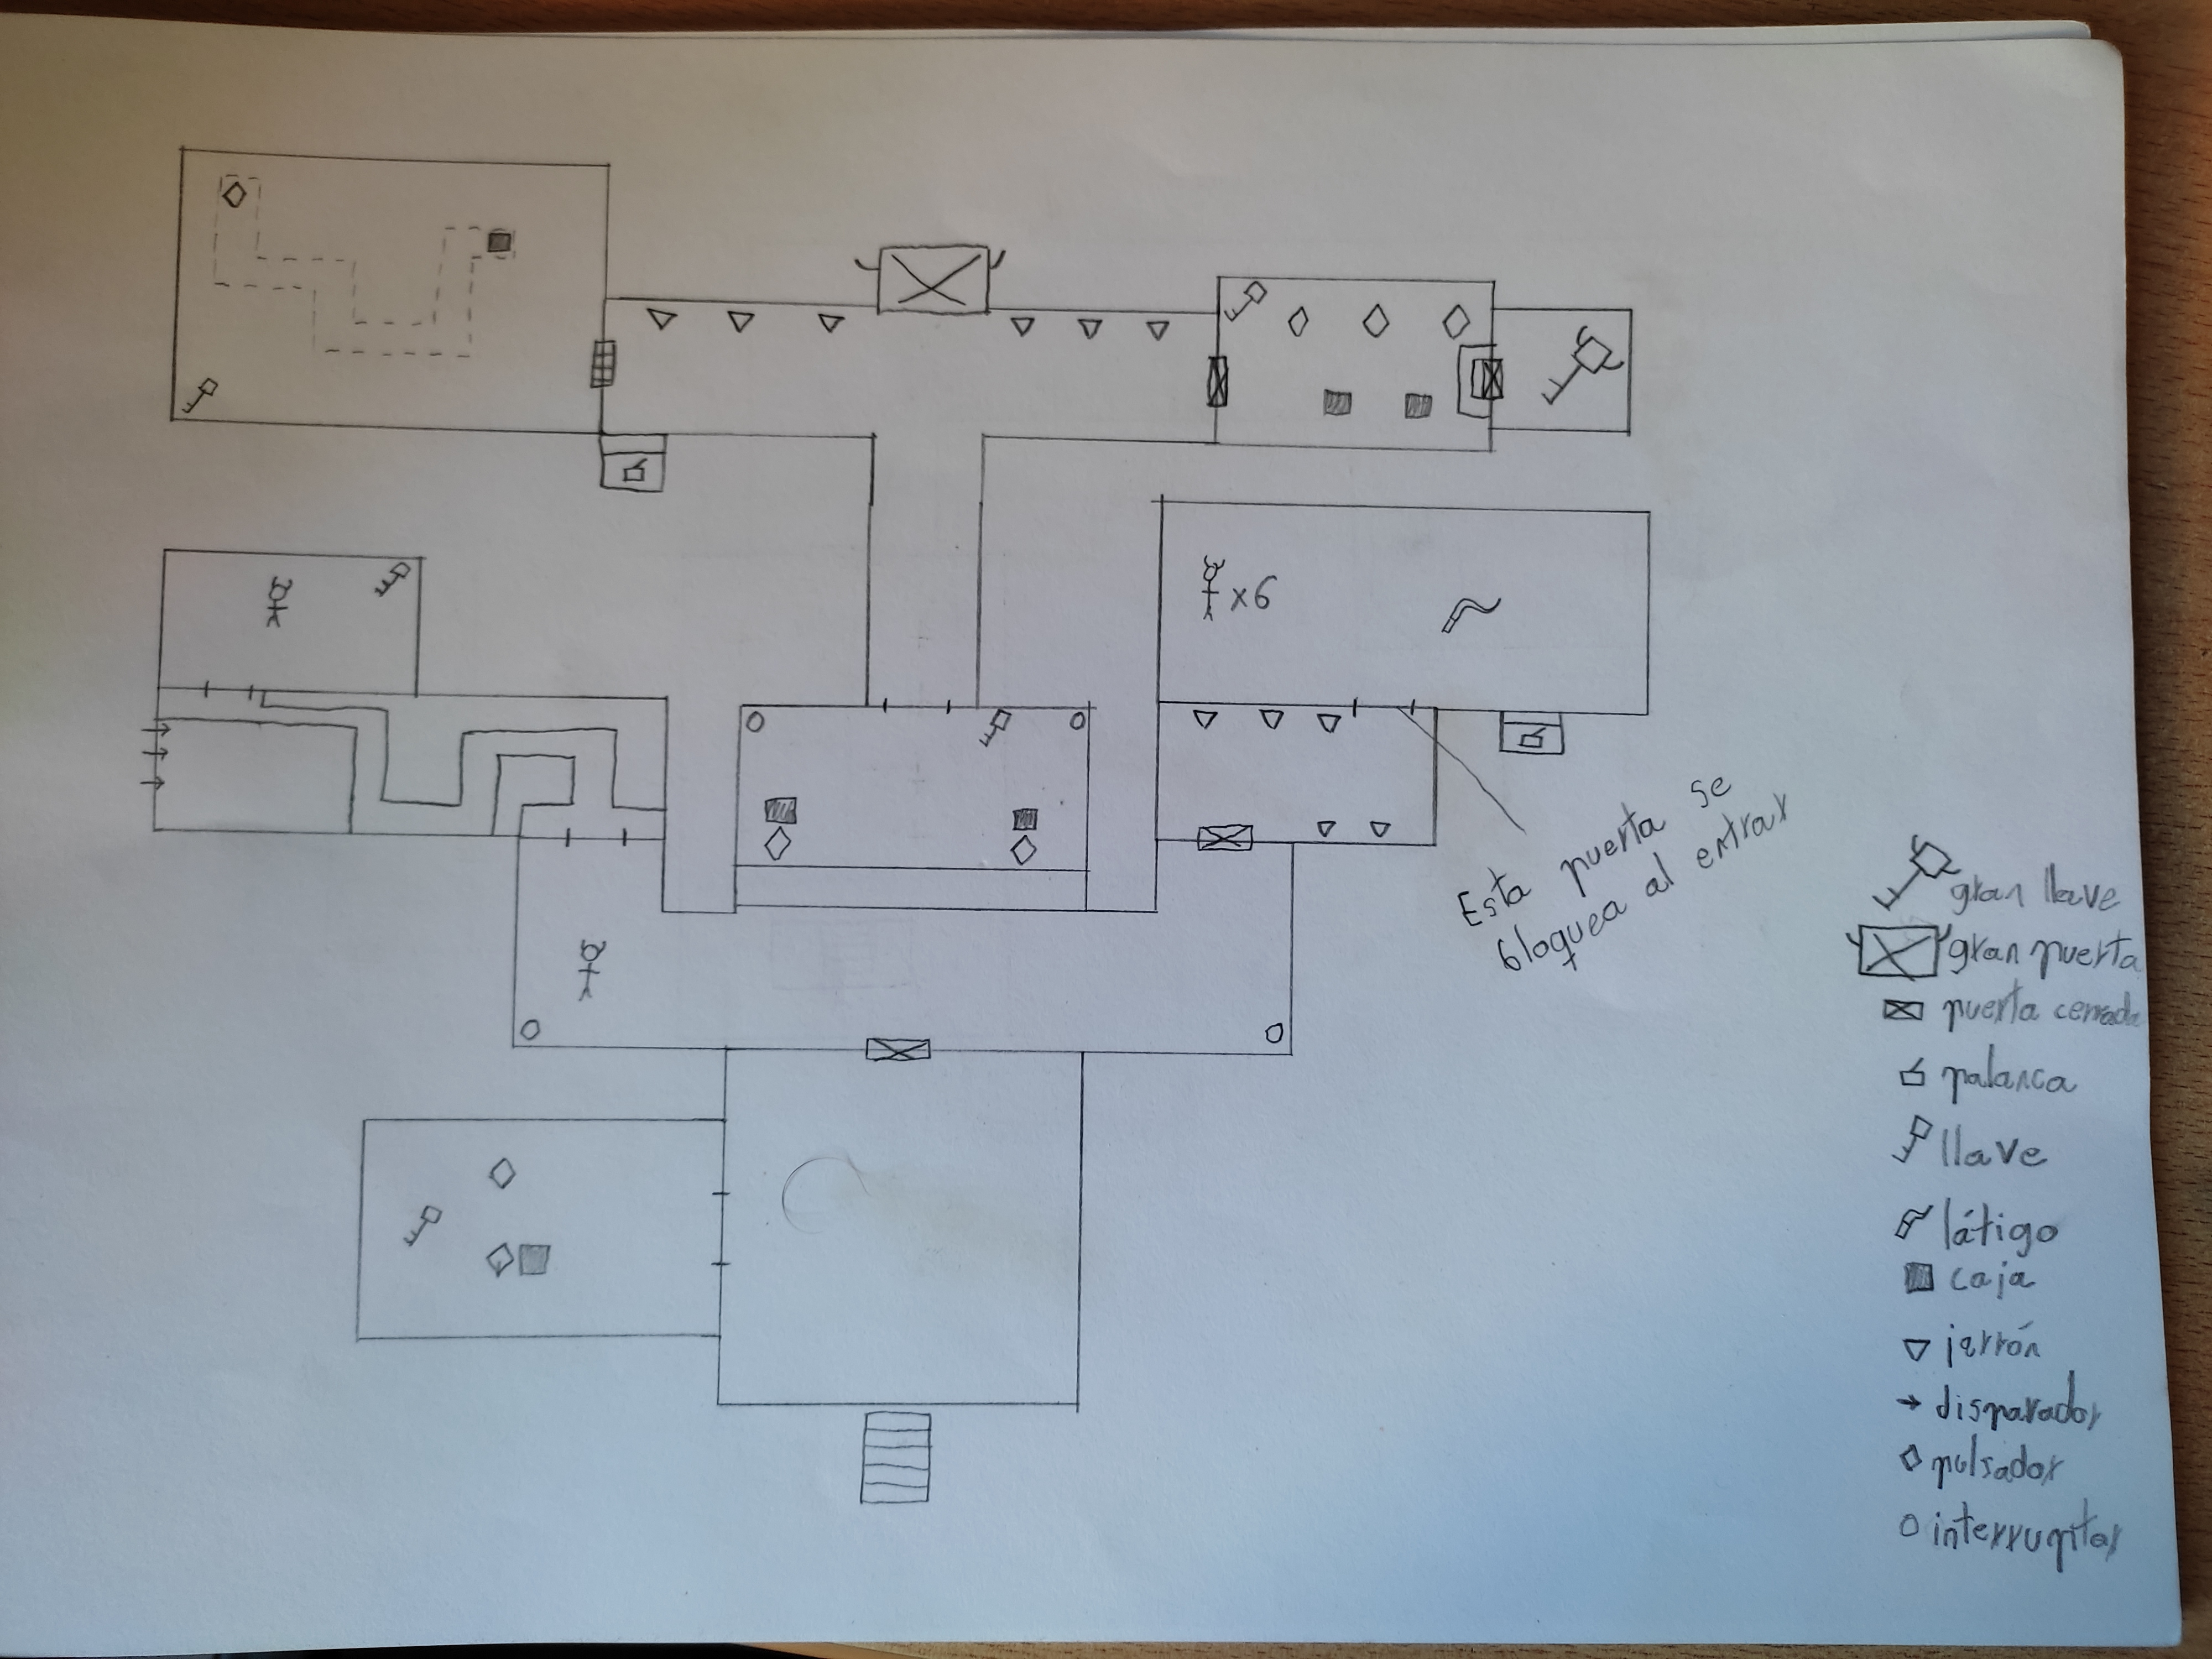 x6
Esta puerta se
bloquea al entrar
gran llave
gran puerta
puerta cerrada
palanca
llave
látigo
caja
jarrón
disparador
pulsador
interruptor